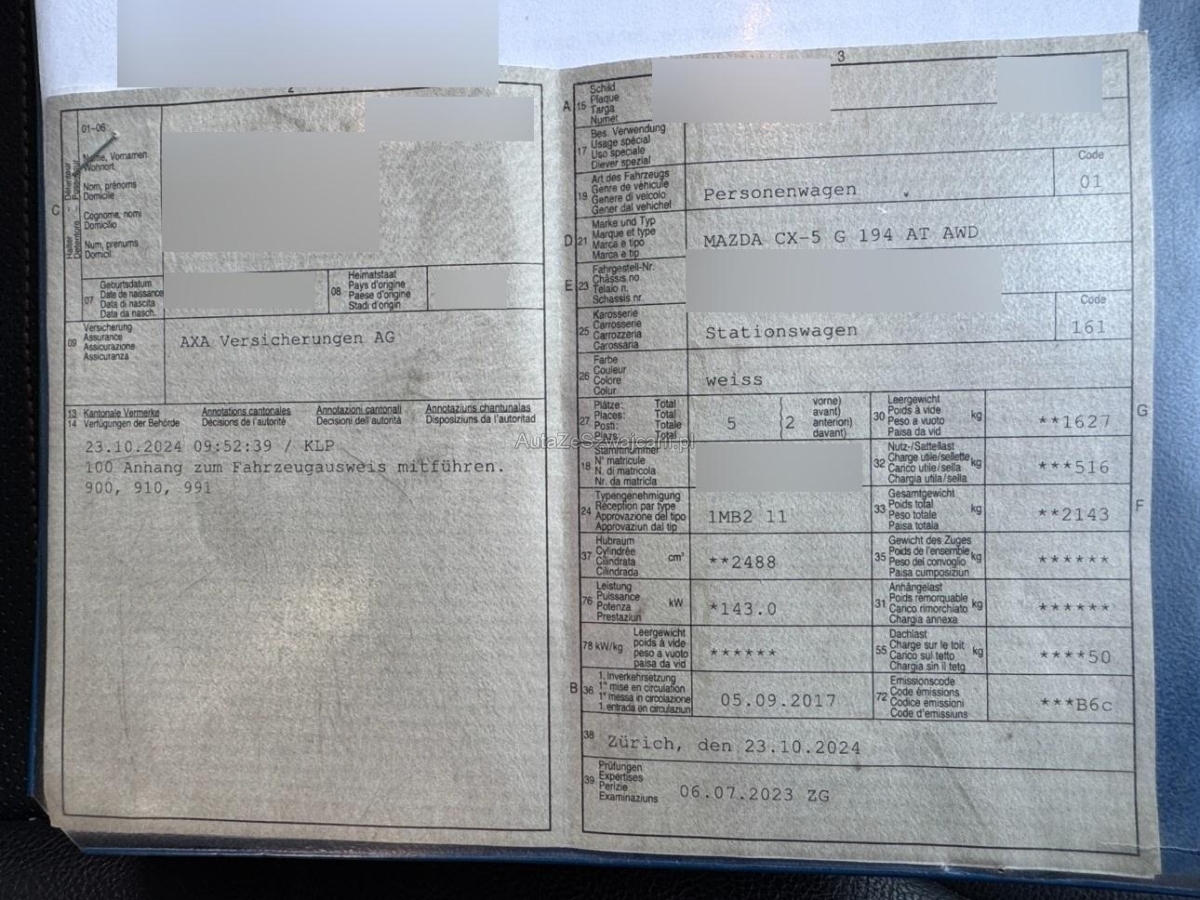 2
01-06
C
Halter - Détenteur
Detentore - Possessur
Name, Vornamen
Wohnort
Nom, prénoms
Domicile
Cognome, nomi
Domicilio
Num, prenums
Domicil
07
Geburtsdatum
Date de naissance
Data di nascita
Data da nasch.
08
Heimatstaat
Pays d'origine
Paese d'origine
Stadi d'origin
09
Versicherung
Assurance
Assicurazione
Assicuranza
AXA Versicherungen AG
13 Kantonale Vermerke Annotations cantonales Annotazioni cantonali Annotaziuns chantunalas
14 Verfügungen der Behörde Décisions de l'autorité Decisioni dell'autorità Disposiziuns da l'autoritad
23.10.2024 09:52:39 / KLP
100 Anhang zum Fahrzeugausweis mitführen.
900, 910, 991
3
A 15
Schild
Plaque
Targa
Numer
17
Bes. Verwendung
Usage spécial
Uso speciale
Diever spezial
19
Art des Fahrzeugs
Genre de véhicule
Genere di veicolo
Gener dal vehichel
Personenwagen
Code
01
D 21
Marke und Typ
Marque et type
Marca e tipo
Marca e tip
MAZDA CX-5 G 194 AT AWD
E 23
Fahrgestell-Nr.
Châssis no
Telaio n.
Schassis nr.
25
Karosserie
Carrosserie
Carrozzeria
Carossaria
Stationswagen
Code
161
26
Farbe
Couleur
Colore
Colur
weiss
27
Plätze: Total
Places: Total
Posti: Totale
Plazs: Total
5
2
vorne)
avant)
anteriori)
davant)
30
Leergewicht
Poids à vide
Peso a vuoto
Paisa da vid
kg
**1627
G
18
Stammnummer
N° matricule
N. di matricola
Nr. da matricla
32
Nutz-/Sattellast
Charge utile/sellette
Carico utile/sella
Chargia utila/sella
kg
***516
24
Typengenehmigung
Réception par type
Approvazione del tipo
Approvaziun dal tip
1MB2 11
33
Gesamtgewicht
Poids total
Peso totale
Paisa totala
kg
**2143
F
37
Hubraum
Cylindrée
Cilindrata
Cilindrada
cm³
**2488
35
Gewicht des Zuges
Poids de l'ensemble
Peso del convoglio
Paisa cumposiziun
kg
******
76
Leistung
Puissance
Potenza
Prestaziun
kW
*143.0
31
Anhängelast
Poids remorquable
Carico rimorchiato
Chargia annexa
kg
******
78 kW/kg
Leergewicht
poids à vide
peso a vuoto
paisa da vid
******
55
Dachlast
Charge sur le toit
Carico sul tetto
Chargia sin il tetg
kg
****50
B 36
1. Inverkehrsetzung
1re mise en circulation
1a messa in circolazione
1. entrada en circulaziun
05.09.2017
72
Emissionscode
Code émissions
Codice emissioni
Code d'emissiuns
***B6c
38
Zürich, den 23.10.2024
39
Prüfungen
Expertises
Perizie
Examinaziuns
06.07.2023 ZG
AutaZeSzwajcarii.pl